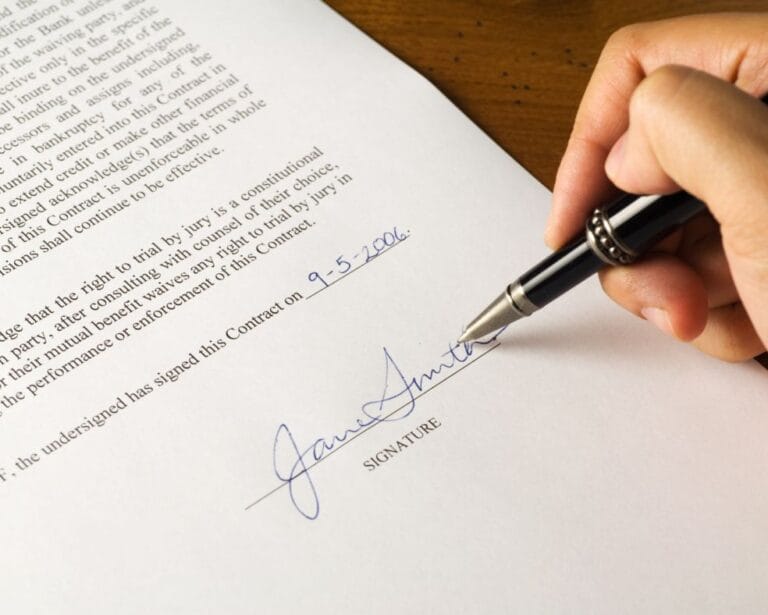 and the
dification of
or the Bank unless
of the waiving party, and
ective only in the specific
all inure to the benefit of the
be binding on the undersigned
ccessors and assigns including,
e in bankruptcy for any of the
luntarily entered into this Contract in
to extend credit or make other financial
ersigned acknowledge(s) that the terms of
of this Contract is unenforceable in whole
isions shall continue to be effective.
dge that the right to trial by jury is a constitutional
n party, after consulting with counsel of their choice,
or their mutual benefit waives any right to trial by jury in
the performance or enforcement of this Contract.
F, the undersigned has signed this Contract on 9-5-2006.
Jane Smith
SIGNATURE